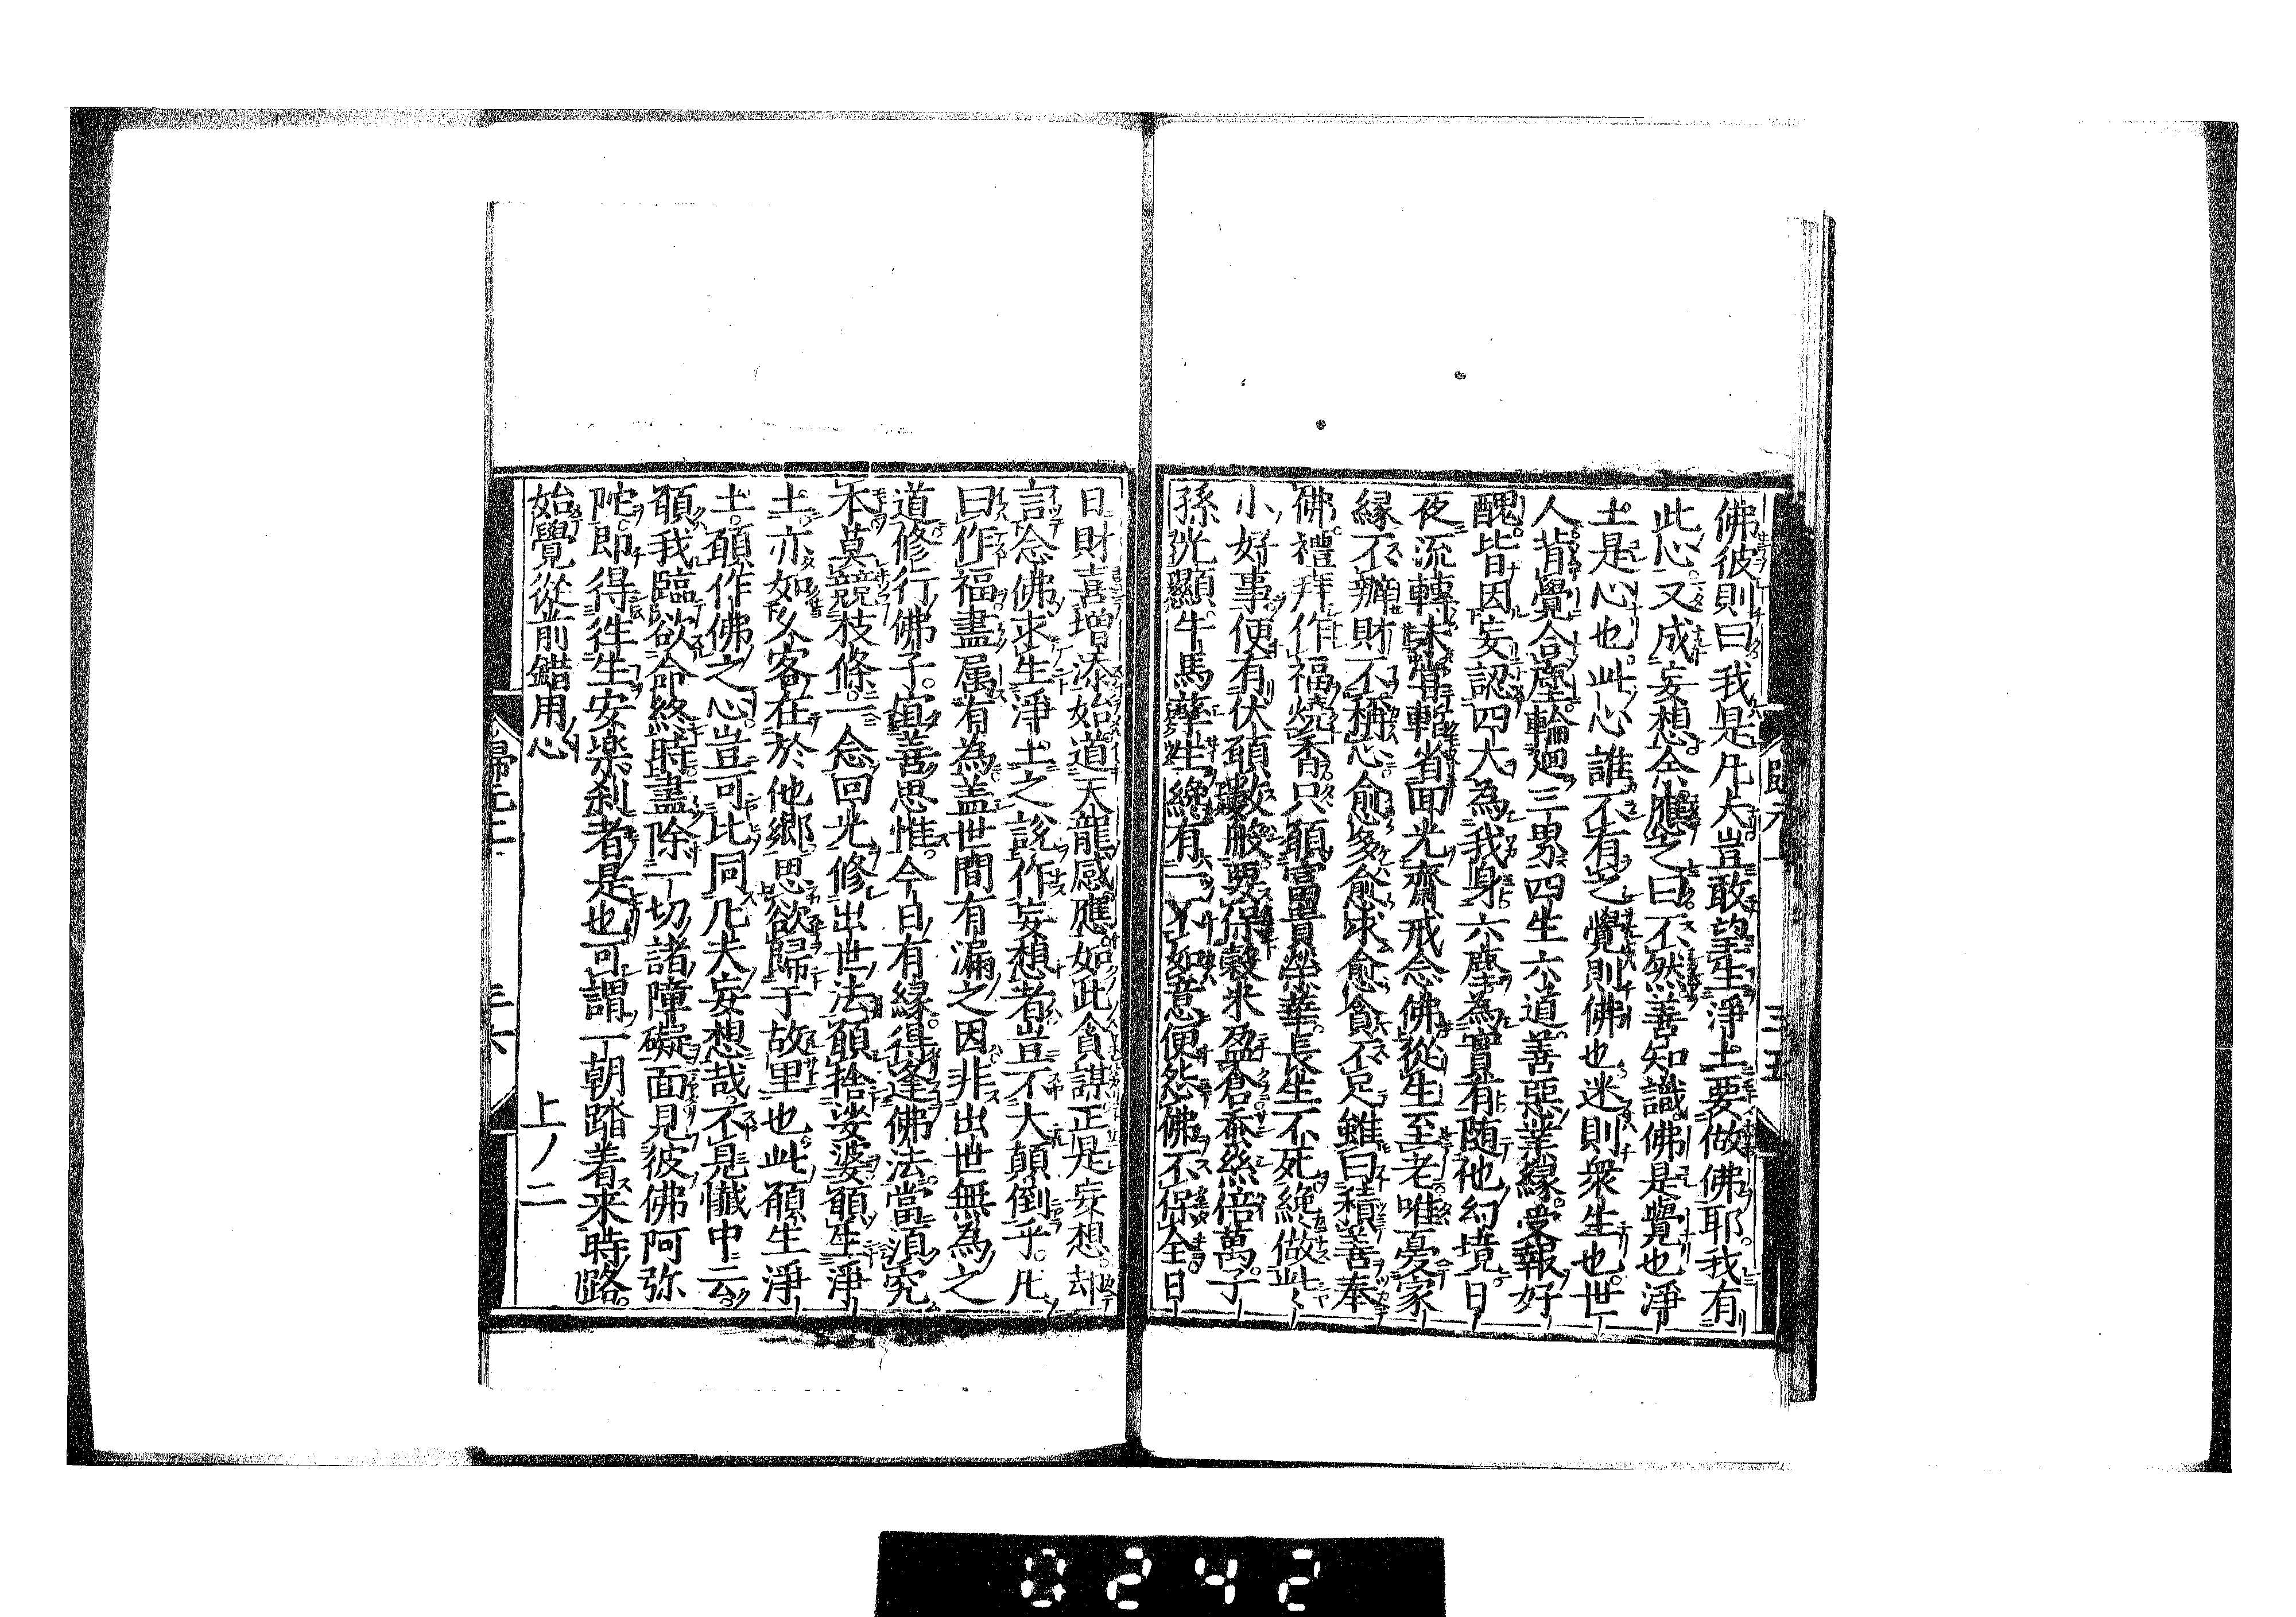 佛彼則曰我是凡夫豈敢望生淨土要做佛耶我有
此心又成妄想余應之曰不然善知識佛是覺也淨
土是心也此心誰不有之覺則佛也迷則衆生也世
人背覺合塵輪廻三界四生六道善惡業緣受報好
醜皆因妄認四大為我身六塵為實有随他幻境日
夜流轉未嘗輕省回光齋戒念佛從生至老唯憂家
緣不辦財不稱心愈多愈求愈貪不足雖曰積善奉
佛禮拜作福燒香只願富貴榮華長生不死纔做此〻
小好事便有伏願數般要保穀米盈倉蚕絲倍萬子
孫光顯牛馬孳生纔有一不如意便怨佛不保全日
日財喜增添始道天龍感應如此貪謀正是妄想却
言念佛求生淨土之說作妄想者豈不大顛倒乎凡
曰作福盡属有為盖世間有漏之因非出世無為之
道修行佛子宜善思惟今日有緣得逢佛法當湏究
本莫競枝條一念回光修出世法願捨娑婆願生淨
土亦如久客在於他鄉思欲歸于故里也此願生淨
土願作佛之心豈可比同凡夫妄想哉不見懺中云
願我臨欲命終時盡除一切諸障礙面見彼佛阿弥
陀即得徃生安楽刹者是也可謂一朝踏着来時路
始覺從前錯用心
上ノ二
歸元二
三六
三五
0242